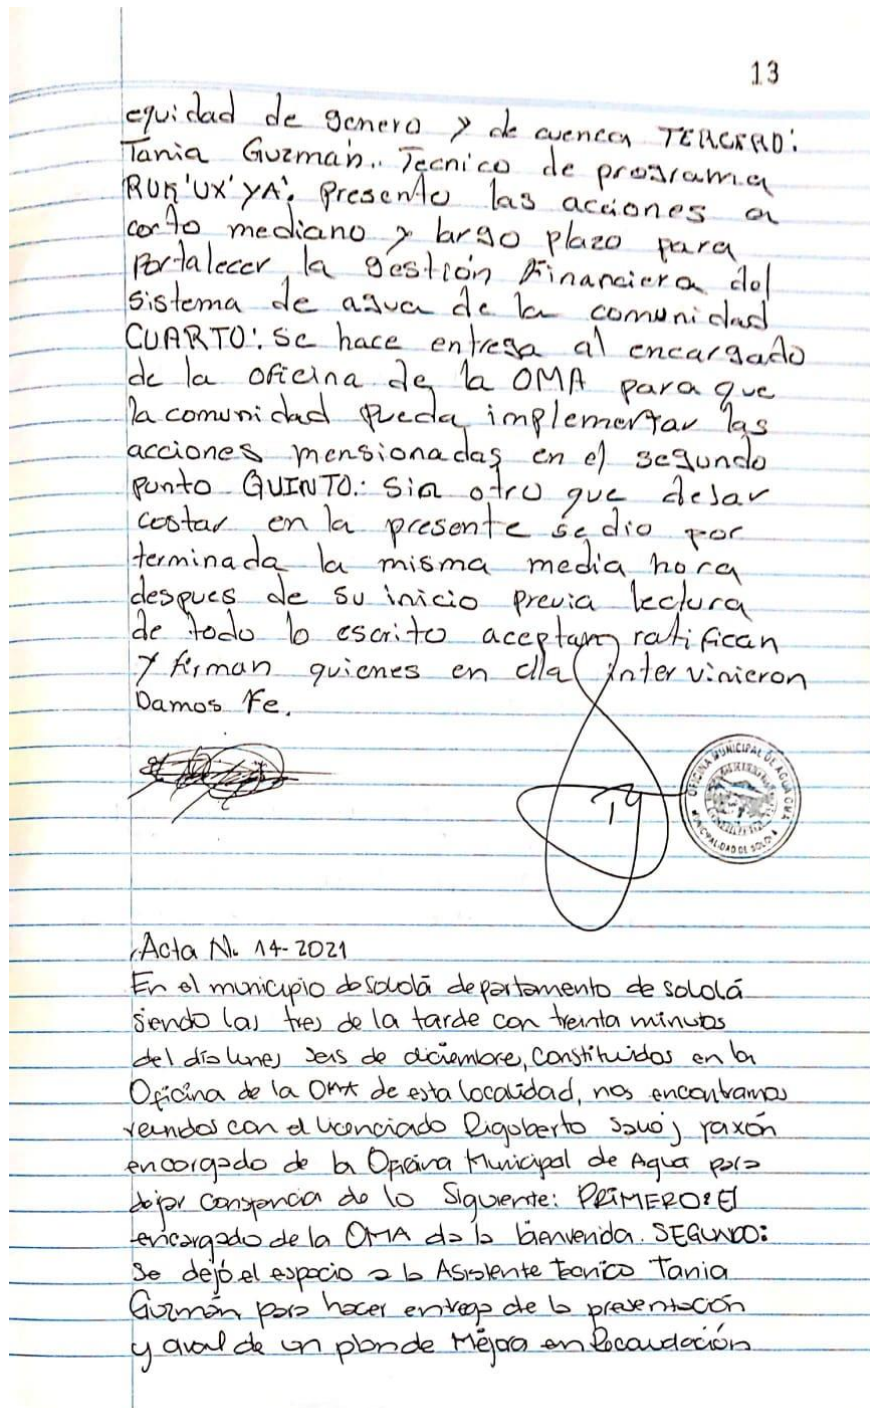 13
equidad de genero y de cuenca TERCERO:
Tania Guzmán. Tecnico de programa
RUK'UX'YA'. Presento las acciones a
corto mediano y largo plazo para
Fortalecer la gestión Financiera del
sistema de agua de la comunidad
CUARTO: Se hace entrega al encargado
de la oficina de la OMA para que
la comunidad pueda implementar las
acciones mensionadas en el segundo
punto QUINTO: Sin otro que dejar
costar en la presente se dio por
terminada la misma media hora
despues de su inicio previa lectura
de todo lo escrito aceptan ratifican
y firman quienes en ella intervinieron
Damos Fe.
OFICINA MUNICIPAL DE AGUA OMA
MUNICIPALIDAD DE SOLOLA
Acta No. 14-2021
En el municipio de sololá departamento de sololá
siendo las tres de la tarde con treinta minutos
del día lunes seis de diciembre, constituidos en la
Oficina de la OMA de esta localidad, nos encontramos
reunidos con el licenciado Rigoberto yaxón
encargado de la Oficina Municipal de Agua para
dejar constancia de lo Siguiente: PRIMERO: El
encargado de la OMA da la bienvenida. SEGUNDO:
Se dejó el espacio a la Asistente tecnico Tania
Guzmán para hacer entrega de la presentación
y aval de un plan de Mejora en Recaudación